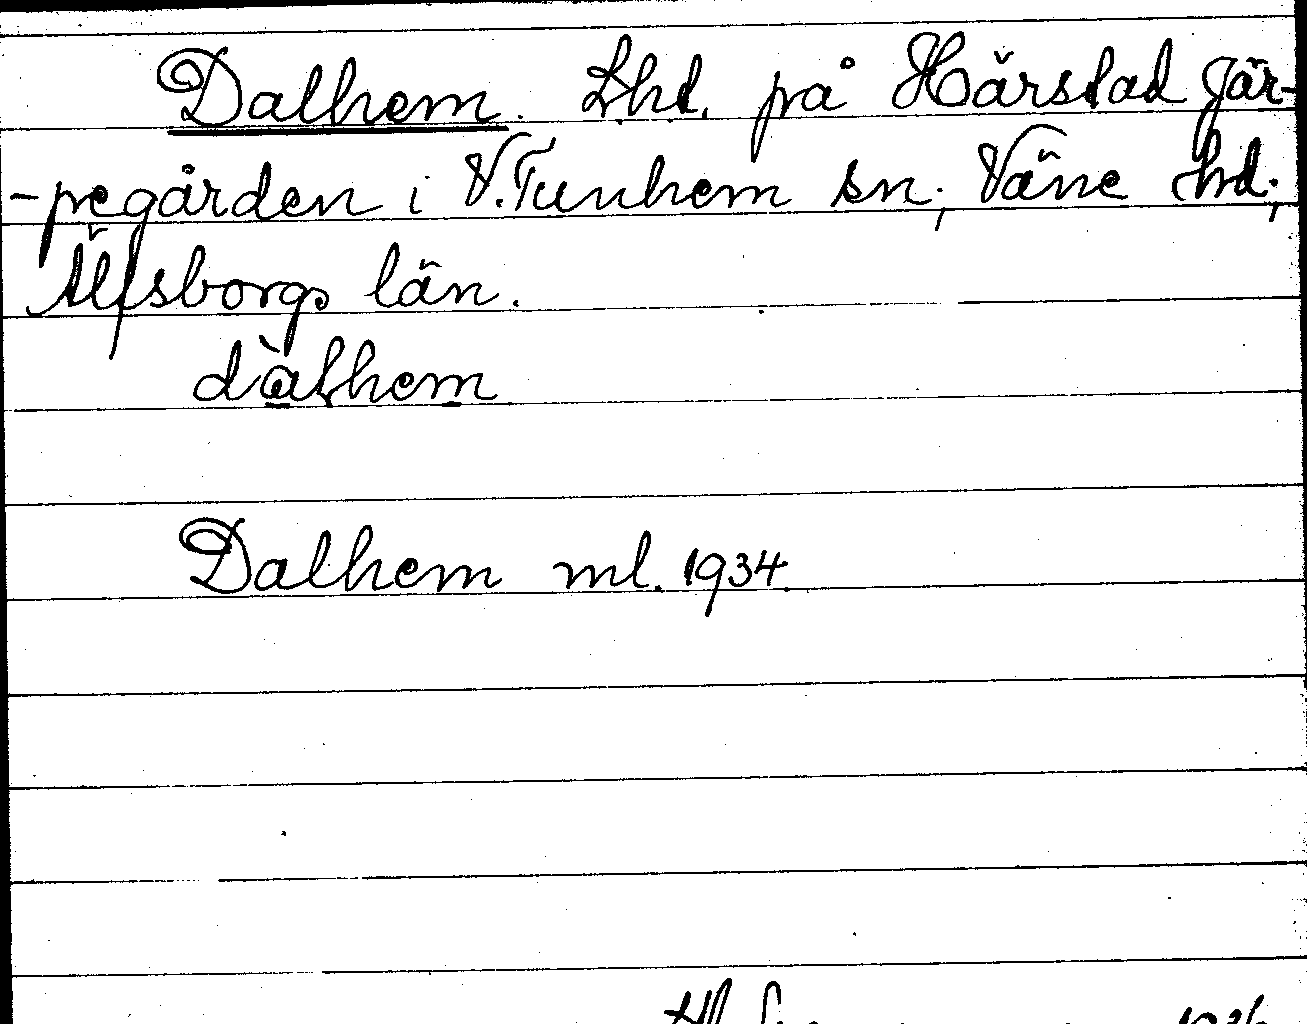 Dalhem. Lhd. på Härstad Jär-
-pegården i V.Tunhem sn, Väne hd,
Älfsborgs län.
dàlhem
Dalhem ml. 1934.